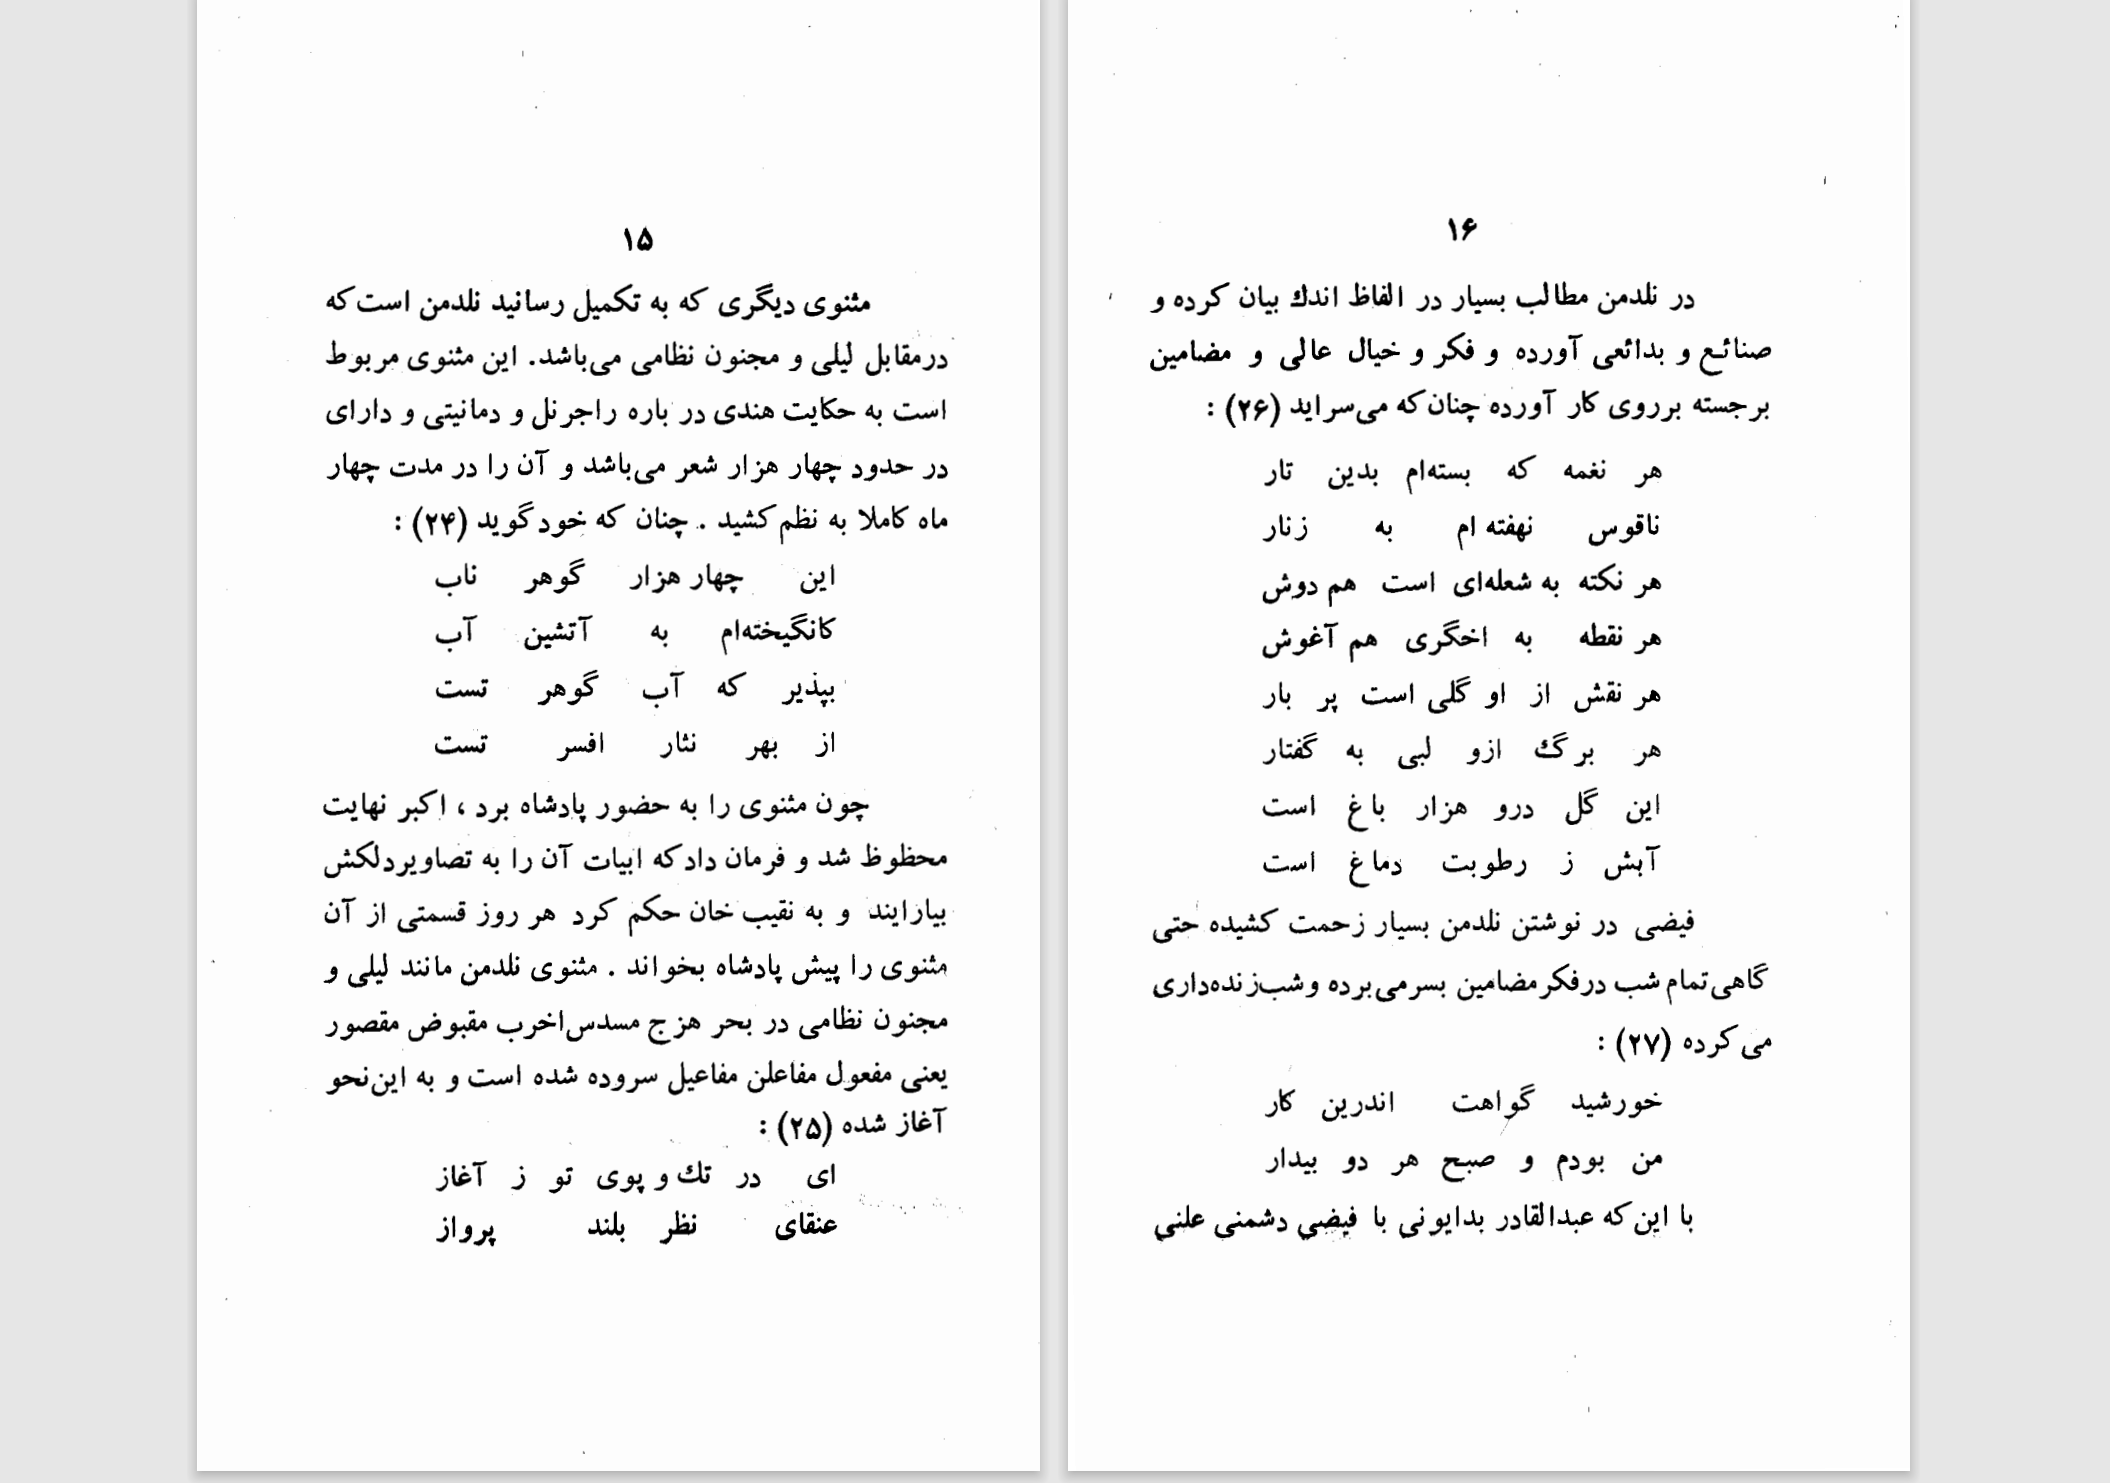 ۱۵
مثنوی دیگری که به تکمیل رسانید نلدمن است که
درمقابل لیلی و مجنون نظامی می‌باشد. این مثنوی مربوط
است به حکایت هندی در باره راجرنل و دمانیتی و دارای
در حدود چهار هزار شعر می‌باشد و آن را در مدت چهار
ماه کاملا به نظم کشید . چنان که خود گوید (۲۴) :
این چهار هزار گوهر ناب
کانگیخته‌ام به آتشین آب
بپذیر که آب گوهر تست
از بهر نثار افسر تست
چون مثنوی را به حضور پادشاه برد ، اکبر نهایت
محظوظ شد و فرمان داد که ابیات آن را به تصاویر دلکش
بیارایند و به نقیب خان حکم کرد هر روز قسمتی از آن
مثنوی را پیش پادشاه بخواند . مثنوی نلدمن مانند لیلی و
مجنون نظامی در بحر هزج مسدس اخرب مقبوض مقصور
یعنی مفعول مفاعلن مفاعیل سروده شده است و به این نحو
آغاز شده (۲۵) :
ای در تك و پوی تو ز آغاز
عنقای نظر بلند پرواز
۱۶
در نلدمن مطالب بسیار در الفاظ اندك بیان کرده و
صنائع و بدائعی آورده و فکر و خیال عالی و مضامین
برجسته برروی کار آورده چنان که می‌سراید (۲۶) :
هر نغمه که بسته‌ام بدین تار
ناقوس نهفته ام به زنار
هر نکته به شعله‌ای است هم دوش
هر نقطه به اخگری هم آغوش
هر نقش از او گلی است پر بار
هر برگ ازو لبی به گفتار
این گل درو هزار باغ است
آبش ز رطوبت دماغ است
فیضی در نوشتن نلدمن بسیار زحمت کشیده حتی
گاهی تمام شب در فکر مضامین بسر می‌برده و شب‌زنده‌داری
می کرده (۲۷) :
خورشید گواهت اندرین کار
من بودم و صبح هر دو بیدار
با این که عبدالقادر بدایونی با فیضی دشمنی علنی